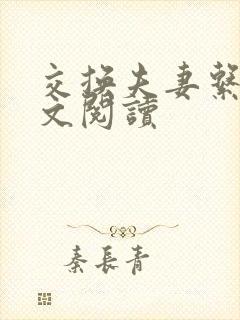 交換夫妻繫
文閱讀
秦長青